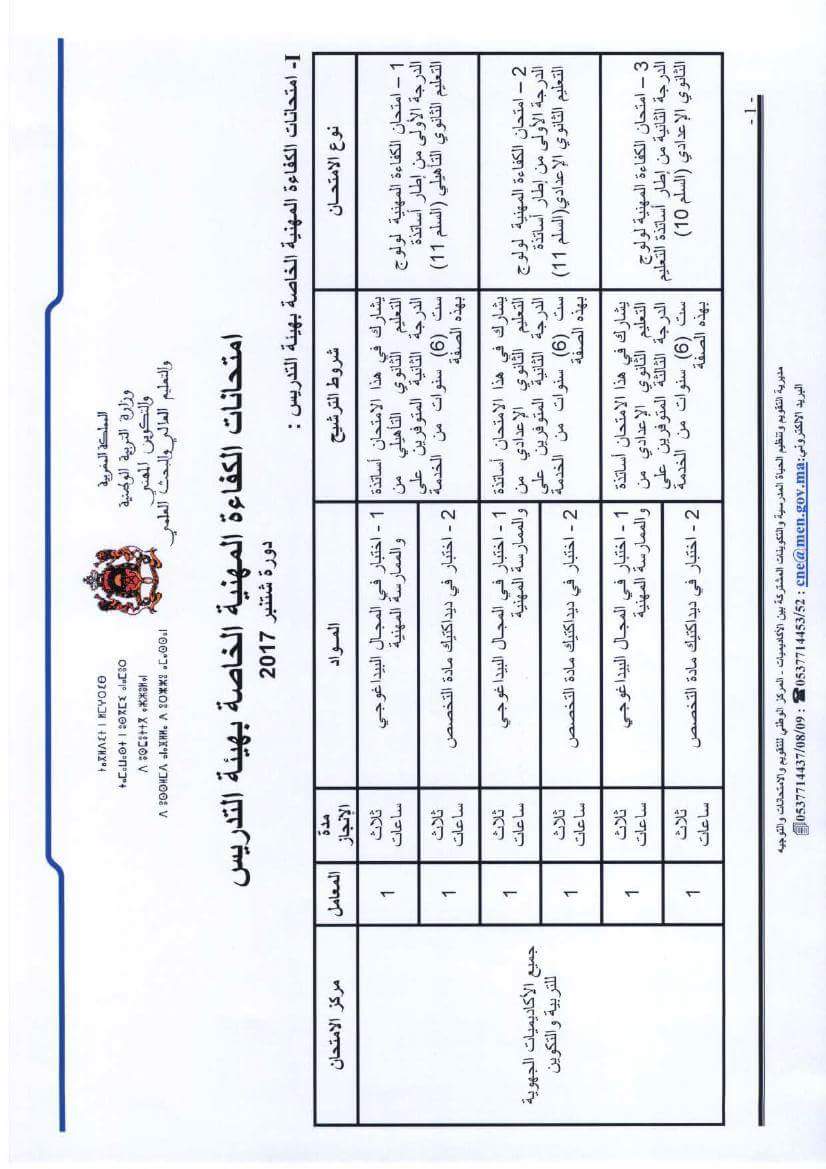 المملكة المغربية
وزارة التربية الوطنية
والتكوين المهني
والتعليم العالي والبحث العلمي
ⵜⴰⴳⵍⴷⵉⵜ ⵏ ⵍⵎⵖⵔⵉⴱ
ⵜⴰⵎⴰⵡⴰⵙⵜ ⵏ ⵓⵙⴳⵎⵉ ⴰⵏⴰⵎⵓⵔ
ⴷ ⵓⵙⵎⵓⵜⵜⴳ ⴰⵣⵣⵓⵍⴰⵏ
ⴷ ⵓⵙⵙⵍⵎⴷ ⴰⵏⴰⴼⵍⵍⴰ ⴷ ⵓⵔⵣⵣⵓ ⴰⵎⴰⵙⵙⴰⵏ
امتحانات الكفاءة المهنية الخاصة بهيئة التدريس
دورة شتنبر 2017
I- امتحانات الكفاءة المهنية الخاصة بهيئة التدريس :
نوع الامتحان
شروط الترشيح
المواد
مدة
الإنجاز
المعامل
مركز الامتحان
1 – امتحان الكفاءة المهنية لولوج
الدرجة الأولى من إطار أساتذة
التعليم الثانوي التأهيلي (السلم 11)
يشارك في هذا الامتحان أساتذة
التعليم الثانوي التأهيلي من
الدرجة الثانية المتوفرين على
ست (6) سنوات من الخدمة
بهذه الصفة
1 - اختبار في المجال البيداغوجي
والممارسة المهنية
ثلاث
ساعات
1
2 - اختبار في ديداكتيك مادة التخصص
ثلاث
ساعات
1
2 – امتحان الكفاءة المهنية لولوج
الدرجة الأولى من إطار أساتذة
التعليم الثانوي الإعدادي(السلم 11)
يشارك في هذا الامتحان أساتذة
التعليم الثانوي الإعدادي من
الدرجة الثانية المتوفرين على
ست (6) سنوات من الخدمة
بهذه الصفة
1 - اختبار في المجال البيداغوجي
والممارسة المهنية
ثلاث
ساعات
1
2 - اختبار في ديداكتيك مادة التخصص
ثلاث
ساعات
1
3 – امتحان الكفاءة المهنية لولوج
الدرجة الثانية من إطار أساتذة التعليم
الثانوي الإعدادي (السلم 10)
يشارك في هذا الامتحان أساتذة
التعليم الثانوي الإعدادي من
الدرجة الثالثة المتوفرين على
ست (6) سنوات من الخدمة
بهذه الصفة
1 - اختبار في المجال البيداغوجي
والممارسة المهنية
ثلاث
ساعات
1
2 - اختبار في ديداكتيك مادة التخصص
ثلاث
ساعات
1
جميع الأكاديميات الجهوية
للتربية والتكوين
- 1 -
مديرية التقويم وتنظيم الحياة المدرسية والتكوينات المشتركة بين الأكاديميات - المركز الوطني للتقويم والامتحانات والتوجيه
البريد الالكتروني:cne@men.gov.ma : 0537714453/52☎ : 0537714437/08/09